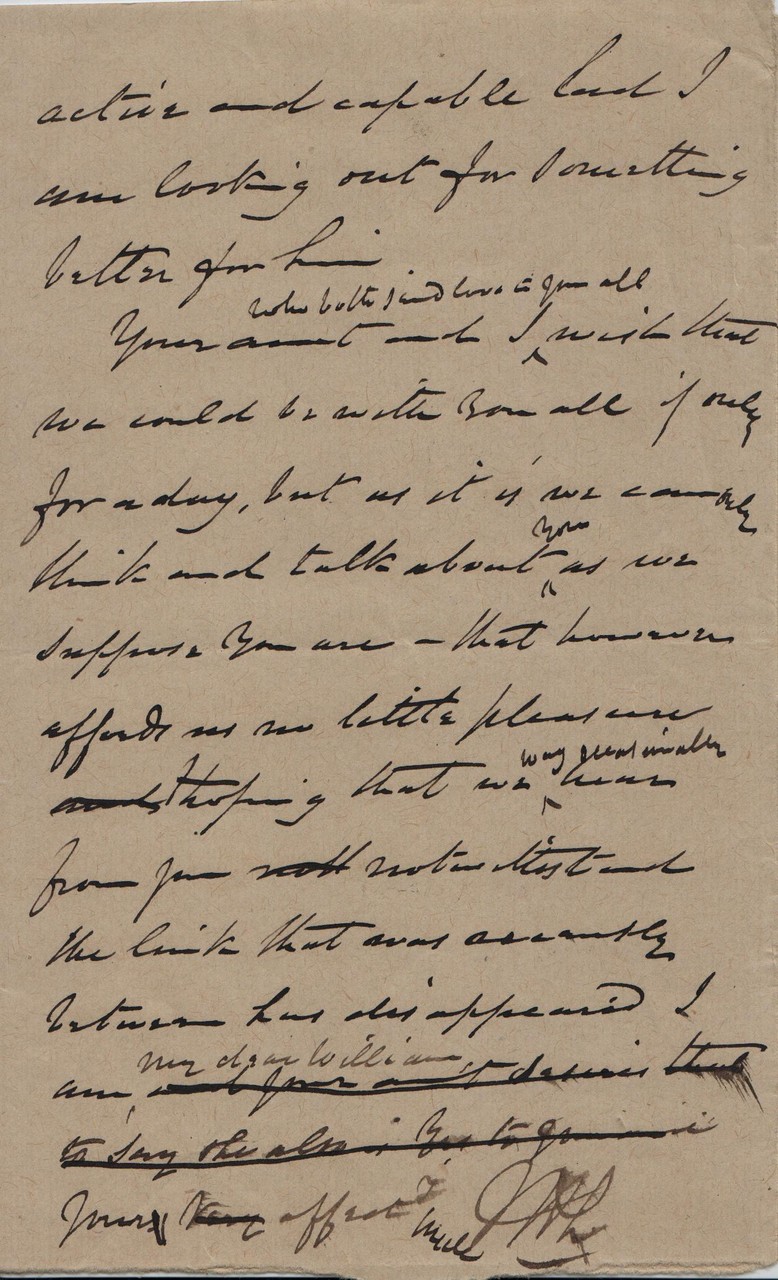 active and capable lad I
am looking out for something
better for him
who both send love to you all
Your aunt and I wish that
we could be with you all if only
for a day, but as it is we can only
you
think and talk about as we
suppose you are – that however
affords us no little pleasure
may occasionally
and hoping that we hear
from you notwithstand
the link that was
between has disappeared I
my dear William
am and your aunt desires that
to say she also is
yours very affect